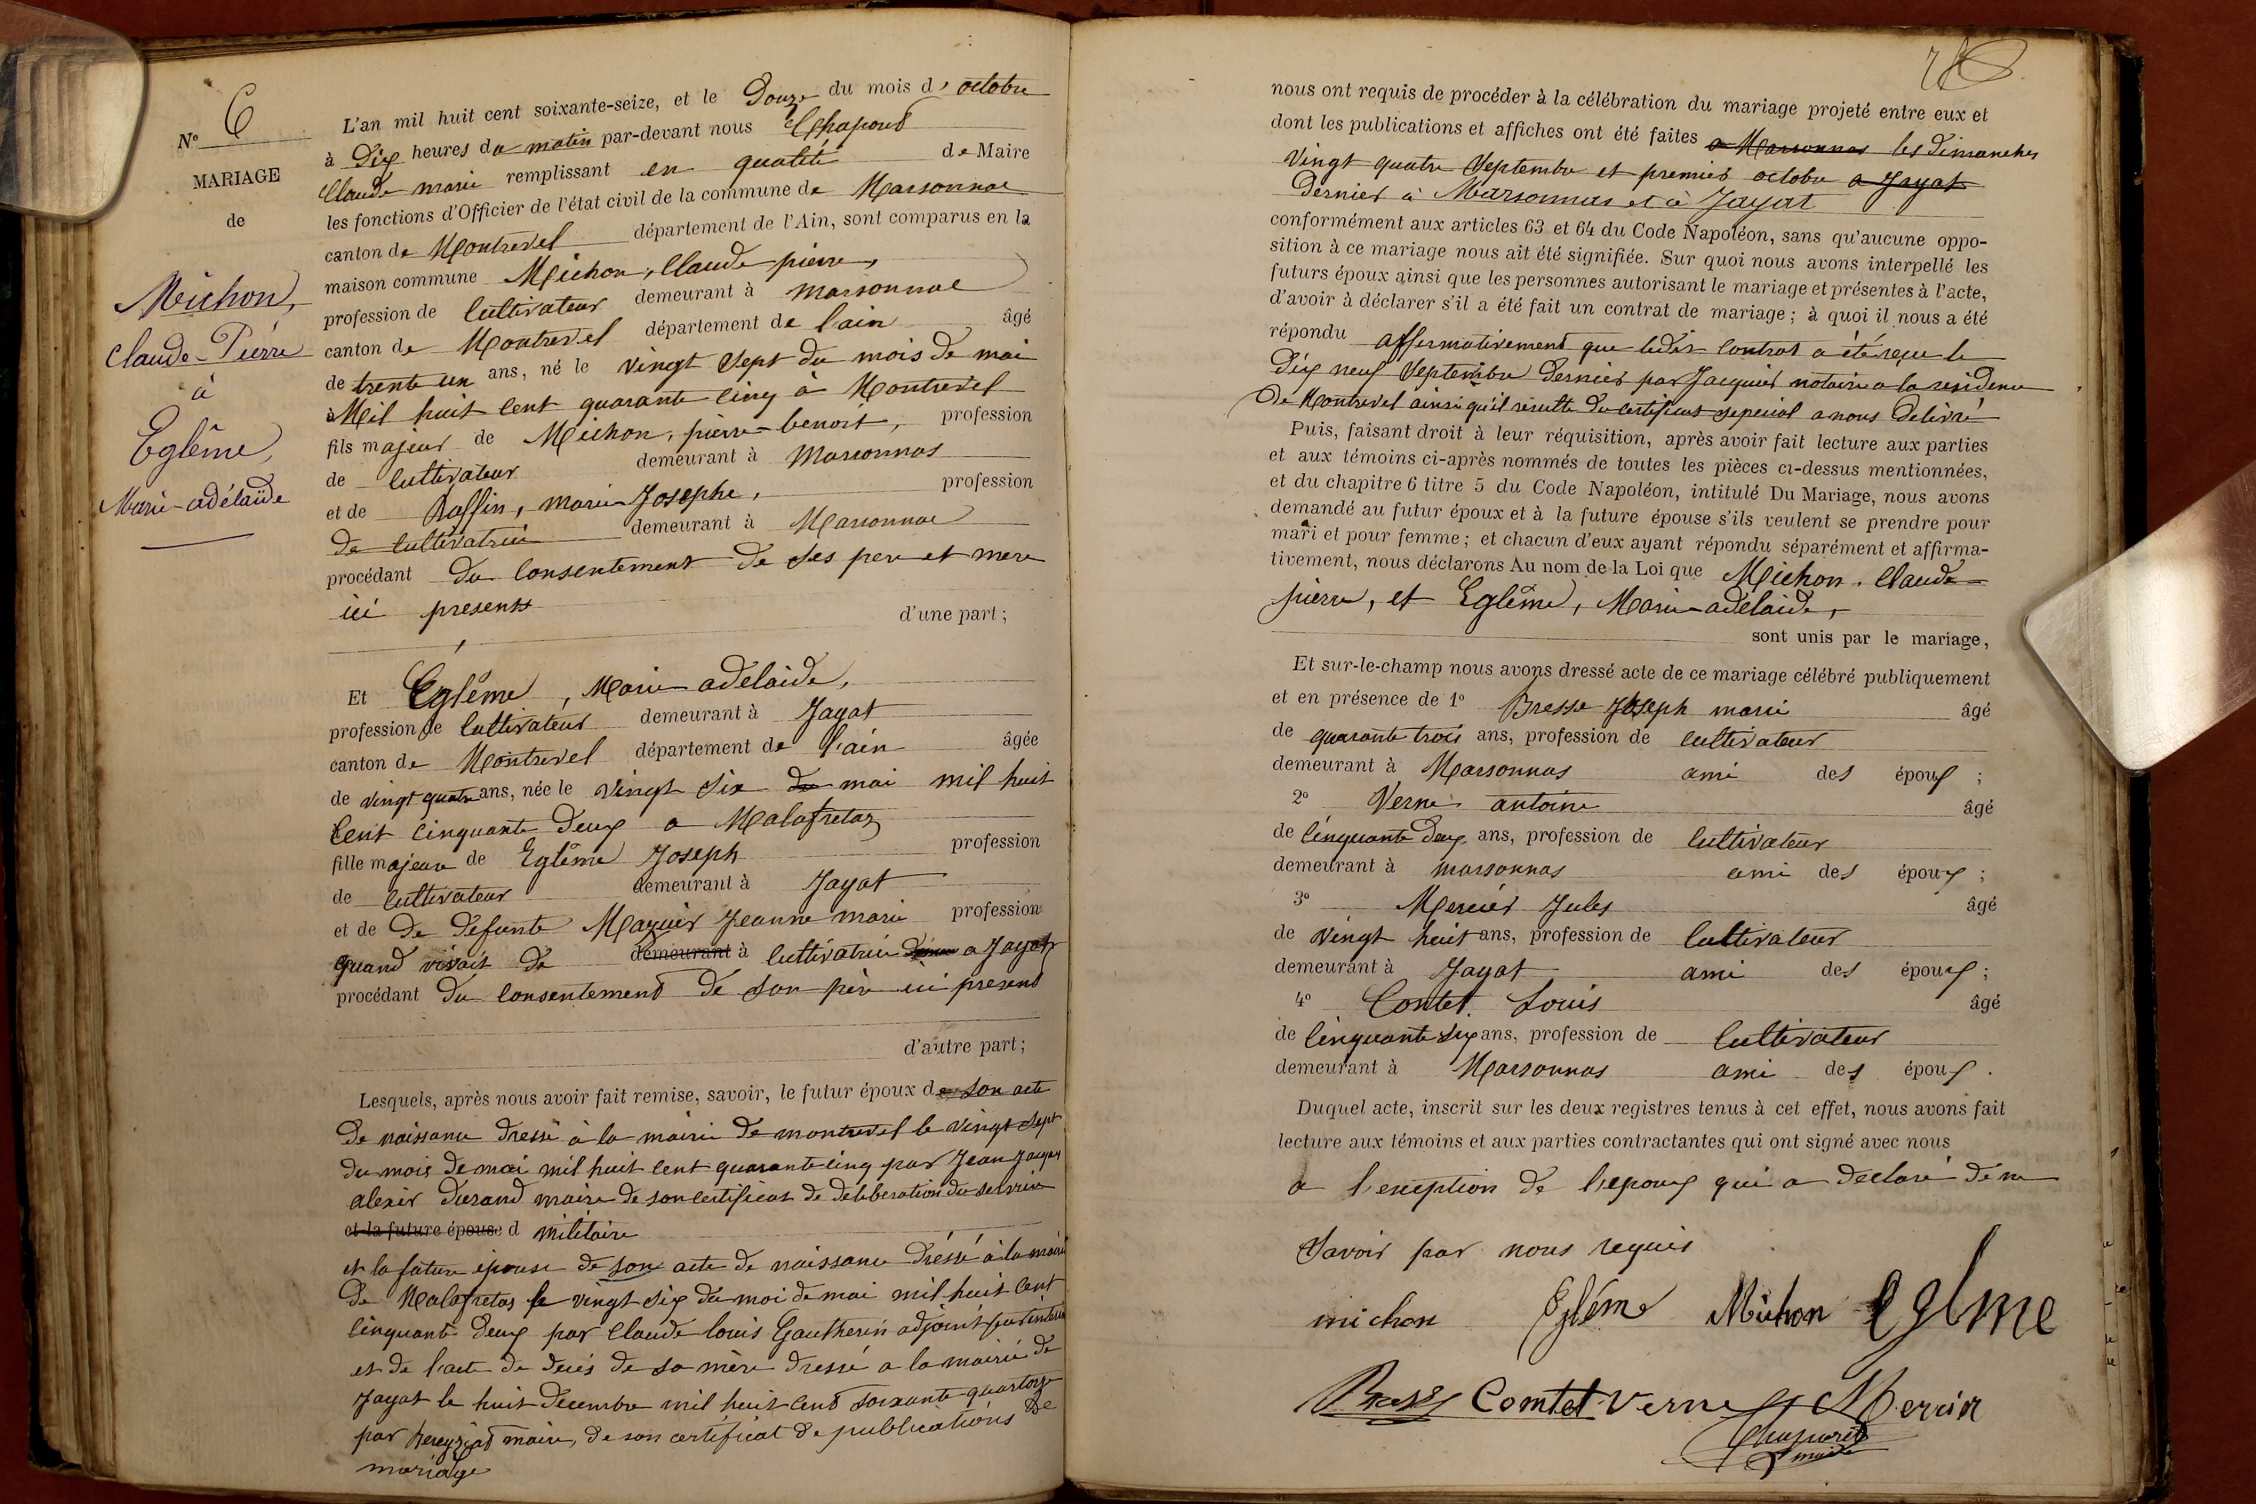 N° 6
MARIAGE
de
Michon,
Claude-Pierre
à
Eglême,
Marie-adélaïde
L'an mil huit cent soixante-seize, et le Douze du mois d'octobre
à Dix heures du matin par-devant nous Chapoud
Claude marie remplissant en qualité de Maire
les fonctions d'Officier de l'état civil de la commune de Marsonnas
canton de Montrevel département de l'Ain, sont comparus en la
maison commune Michon, Claude pierre,
profession de Cultivateur demeurant à marsonnas
canton de Montrevel département de l'ain âgé
de trente un ans, né le vingt sept du mois de mai
Mil huit cent quarante cinq à Montrevel
fils majeur de Michon, pierre-benoit, profession
de Cultivateur demeurant à Marsonnas
et de Raffin, marie-Josephe, profession
de cultivatrice demeurant à Marsonnas
procédant du consentement de ses pere et mere
ici presents
d'une part;
Et Eglême, Marie-adelaide,
profession de Cultivateur demeurant à Jayat
canton de Montrevel département de l'ain âgée
de vingt quatre ans, née le vingt six du mai mil huit
Cent cinquante Deux a Malafretaz
fille majeure de Eglême Joseph profession
de Cultivateur demeurant à Jayat
et de De defunte Mazuir Jeanne marie profession
quand vivait de demeurant à cultivatrice a Jayat
procédant du consentement de son père ici present
d'autre part;
Lesquels, après nous avoir fait remise, savoir, le futur époux de son acte
De naissance dressé à la mairie de montrevel le vingt sept
du mois de mai mil huit cent quarante cinq par Jean Jacques
alexis durand maire de son certificat de deliberation du service
et la future épouse d militaire
et la future épouse de son acte de naissance dressé à la mairie
De Malafretas le vingt six du moi de mai mil huit cent
cinquante deux par Claude louis Gautherin adjoint par interim
et de l'acte de deces de sa mère dressé a la mairie de
Jayat le huit decembre mil huit cent soixante quatorze
par maire, de son certificat de publications de
mariage
nous ont requis de procéder à la célébration du mariage projeté entre eux et
dont les publications et affiches ont été faites a Marsonnas les dimanches
Vingt quatre Septembre et premier octobre a Jayat
Dernier à Marsonnas et à Jayat
conformément aux articles 63 et 64 du Code Napoléon, sans qu'aucune oppo-
sition à ce mariage nous ait été signifiée. Sur quoi nous avons interpellé les
futurs époux ainsi que les personnes autorisant le mariage et présentes à l'acte,
d'avoir à déclarer s'il a été fait un contrat de mariage; à quoi il nous a été
répondu affirmativement que ledit contrat a été reçu le
Dix neuf Septembre dernier par Jacquier notaire a la residence
De Montrevel ainsi qu'il résulte du certificat special a nous delivré
Puis, faisant droit à leur réquisition, après avoir fait lecture aux parties
et aux témoins ci-après nommés de toutes les pièces ci-dessus mentionnées,
et du chapitre 6 titre 5 du Code Napoléon, intitulé Du Mariage, nous avons
demandé au futur époux et à la future épouse s'ils veulent se prendre pour
mari et pour femme; et chacun d'eux ayant répondu séparément et affirma-
tivement, nous déclarons Au nom de la Loi que Michon, Claude-
pierre, et Eglême, Marie-adelaide,
sont unis par le mariage,
Et sur-le-champ nous avons dressé acte de ce mariage célébré publiquement
et en présence de 1° Bresse Joseph marie âgé
de quarante trois ans, profession de cultivateur
demeurant à Marsonnas ami des époux ;
2° Verne antoine âgé
de cinquante deux ans, profession de cultivateur
demeurant à marsonnas ami des époux ;
3° Mercier Jules âgé
de vingt huit ans, profession de Cultivateur
demeurant à Jayat ami des époux ;
4° Contet Louis âgé
de cinquante six ans, profession de Cultivateur
demeurant à Marsonnas ami des époux .
Duquel acte, inscrit sur les deux registres tenus à cet effet, nous avons fait
lecture aux témoins et aux parties contractantes qui ont signé avec nous
a l'exception de l'epoux qui a declaré de ne
Savoir par nous requis
michon Eglême Michon Eglme
Bresse Comtet Verne Mercier
Chapoud
maire